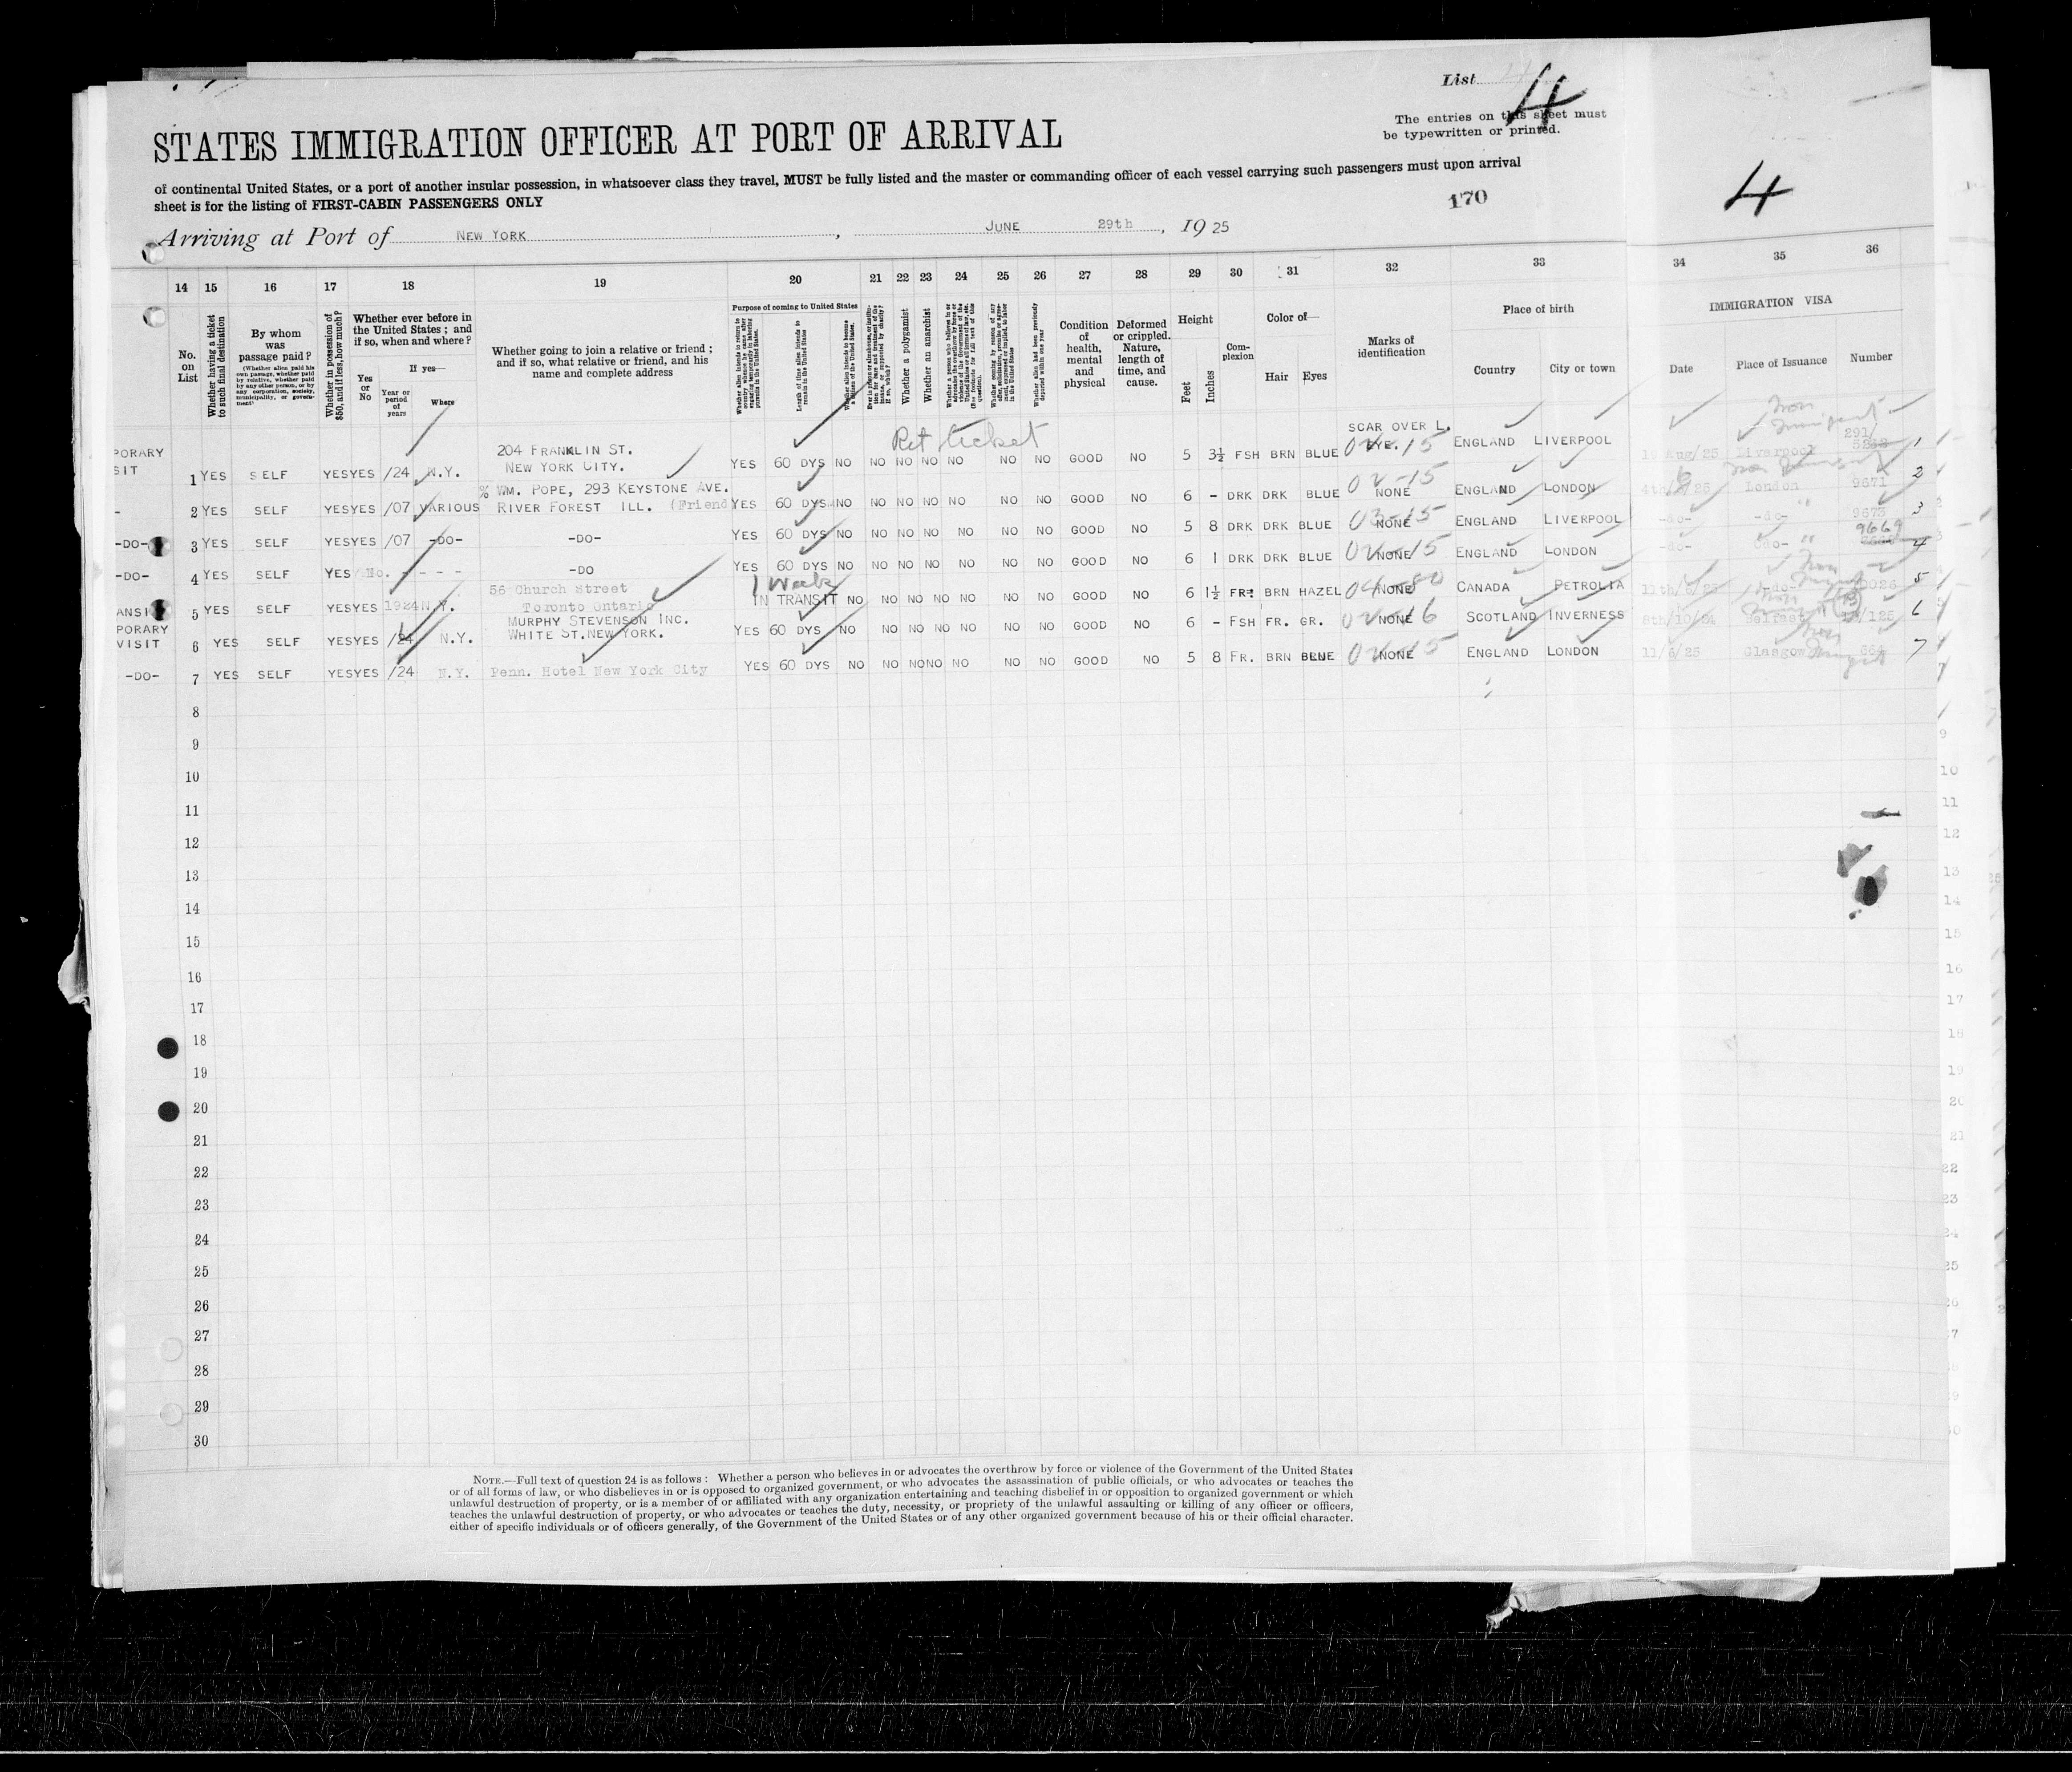 List 4
The entries on this sheet must
be typewritten or printed.
STATES IMMIGRATION OFFICER AT PORT OF ARRIVAL
4
of continental United States, or a port of another insular possession, in whatsoever class they travel, MUST be fully listed and the master or commanding officer of each vessel carrying such passengers must upon arrival
sheet is for the listing of FIRST-CABIN PASSENGERS ONLY
170
Arriving at Port of NEW YORK, JUNE 29th, 1925
14 15 16 17 18 19 20 21 22 23 24 25 26 27 28 29 30 31 32 33 34 35 36
No. on List
Whether having a ticket to such final destination
By whom was passage paid?
(Whether alien paid his own passage, whether paid by relative, whether paid by any other person, or by any corporation, society, municipality, or government)
Whether in possession of $50, and if less, how much?
Whether ever before in the United States; and if so, when and where?
If yes—
Yes or No
Year or period of years
Where
Whether going to join a relative or friend; and if so, what relative or friend, and his name and complete address
Purpose of coming to United States
Length of time alien intends to remain in the United States
Whether a polygamist
Whether an anarchist
Whether alien had been previously deported within one year
Condition of health, mental and physical
Deformed or crippled. Nature, length of time, and cause.
Height
Feet
Inches
Complexion
Color of—
Hair Eyes
Marks of identification
Place of birth
Country City or town
IMMIGRATION VISA
Date Place of Issuance Number
Ret ticket
PORARY
SIT
204 FRANKLIN ST.
NEW YORK CITY.
SCAR OVER L.
EYE. 02-15
291/
1 YES SELF YES YES /24 N.Y. YES 60 DYS NO NO NO NO NO NO NO GOOD NO 5 3½ FSH BRN BLUE ENGLAND LIVERPOOL Aug/25 Liverpool 1
% WM. POPE, 293 KEYSTONE AVE.
RIVER FOREST ILL. (Friend
- 2 YES SELF YES YES /07 VARIOUS YES 60 DYS NO NO NO NO NO NO NO GOOD NO 6 - DRK DRK BLUE NONE 02-15 ENGLAND LONDON London 9671 2
-DO- 3 YES SELF YES YES /07 -DO- -DO- YES 60 DYS NO NO NO NO NO NO NO GOOD NO 5 8 DRK DRK BLUE NONE 03-15 ENGLAND LIVERPOOL -do- -do- 9673 3
-DO- 4 YES SELF YES No. - - - -DO YES 60 DYS NO NO NO NO NO NO NO GOOD NO 6 1 DRK DRK BLUE NONE 02-15 ENGLAND LONDON -do- -do- 9669 4
56 Church Street
Toronto Ontario
1 Week
ANSI 5 YES SELF YES YES 1924 N.Y. IN TRANSIT NO NO NO NO NO NO NO GOOD NO 6 1½ FR BRN HAZEL NONE 04-80 CANADA PETROLIA 11th/6/25 5
PORARY
VISIT
MURPHY STEVENSON INC.
WHITE ST. NEW YORK.
6 YES SELF YES YES /24 N.Y. YES 60 DYS NO NO NO NO NO NO NO GOOD NO 6 - FSH FR. GR. NONE 02-16 SCOTLAND INVERNESS 8th/10/24 Belfast /125 6
-DO- 7 YES SELF YES YES /24 N.Y. Penn. Hotel New York City YES 60 DYS NO NO NO NO NO NO NO GOOD NO 5 8 FR. BRN BLUE NONE 02-15 ENGLAND LONDON 11/6/25 Glasgow 7
8
9
10
11
12
13
14
15
16
17
18
19
20
21
22
23
24
25
26
27
28
29
30
NOTE.—Full text of question 24 is as follows: Whether a person who believes in or advocates the overthrow by force or violence of the Government of the United States
or of all forms of law, or who disbelieves in or is opposed to organized government, or who advocates the assassination of public officials, or who advocates or teaches the
unlawful destruction of property, or is a member of or affiliated with any organization entertaining and teaching disbelief in or opposition to organized government or which
teaches the unlawful destruction of property, or who advocates or teaches the duty, necessity, or propriety of the unlawful assaulting or killing of any officer or officers,
either of specific individuals or of officers generally, of the Government of the United States or of any other organized government because of his or their official character.